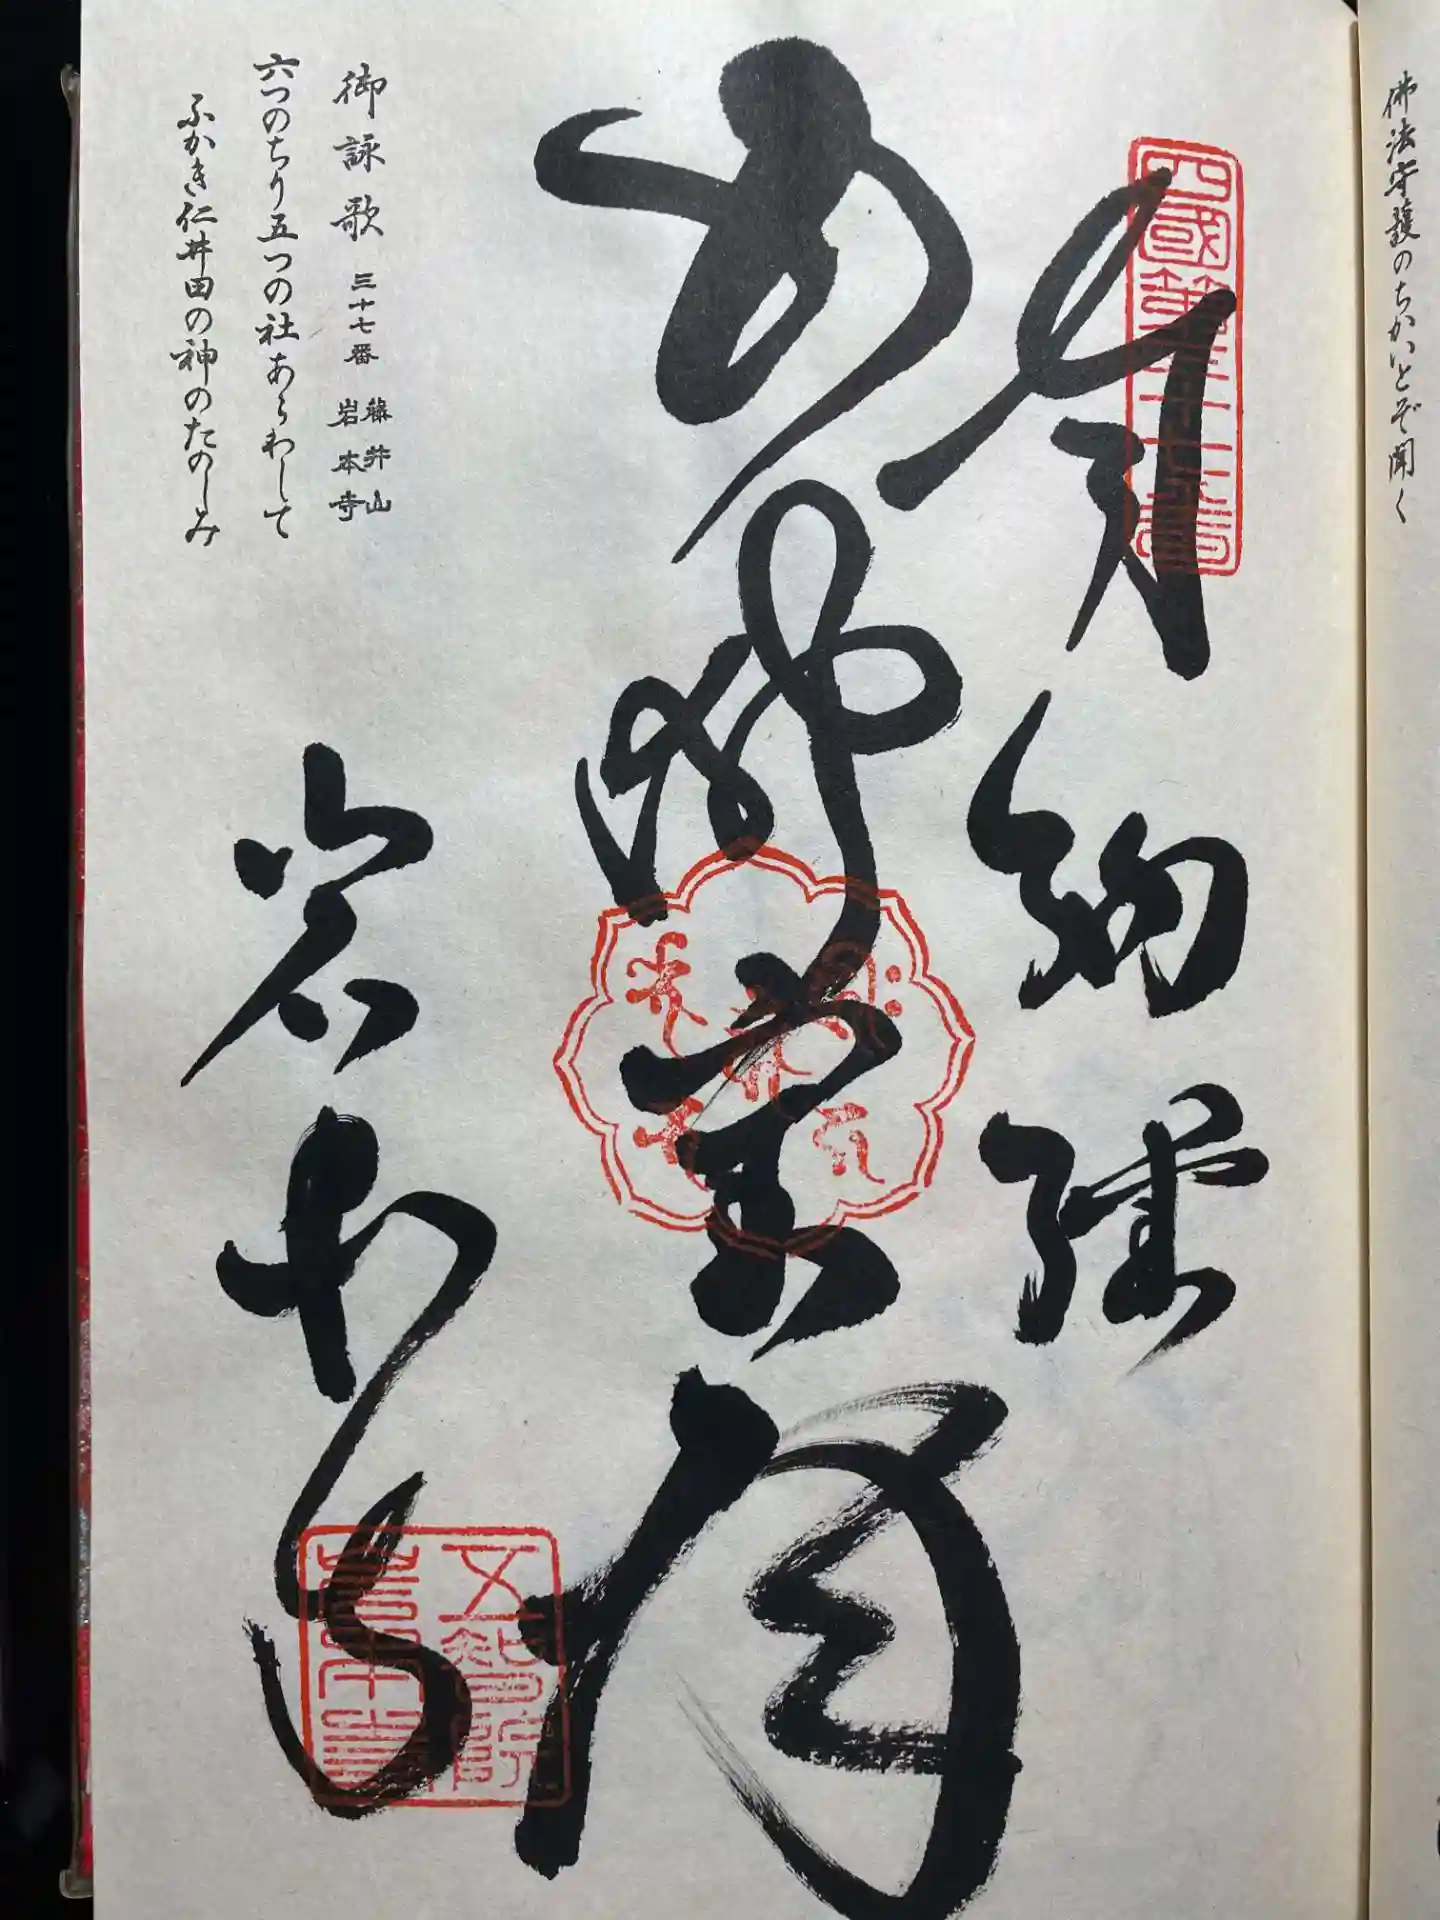 佛法守護のちかいとぞ聞く
四國第三十七番
奉納経
岩本寺
五智院
岩本寺
御詠歌 三十七番 藤井山 岩本寺
六つのちり五つの社あらわして
ふかき仁井田の神のたのしみ